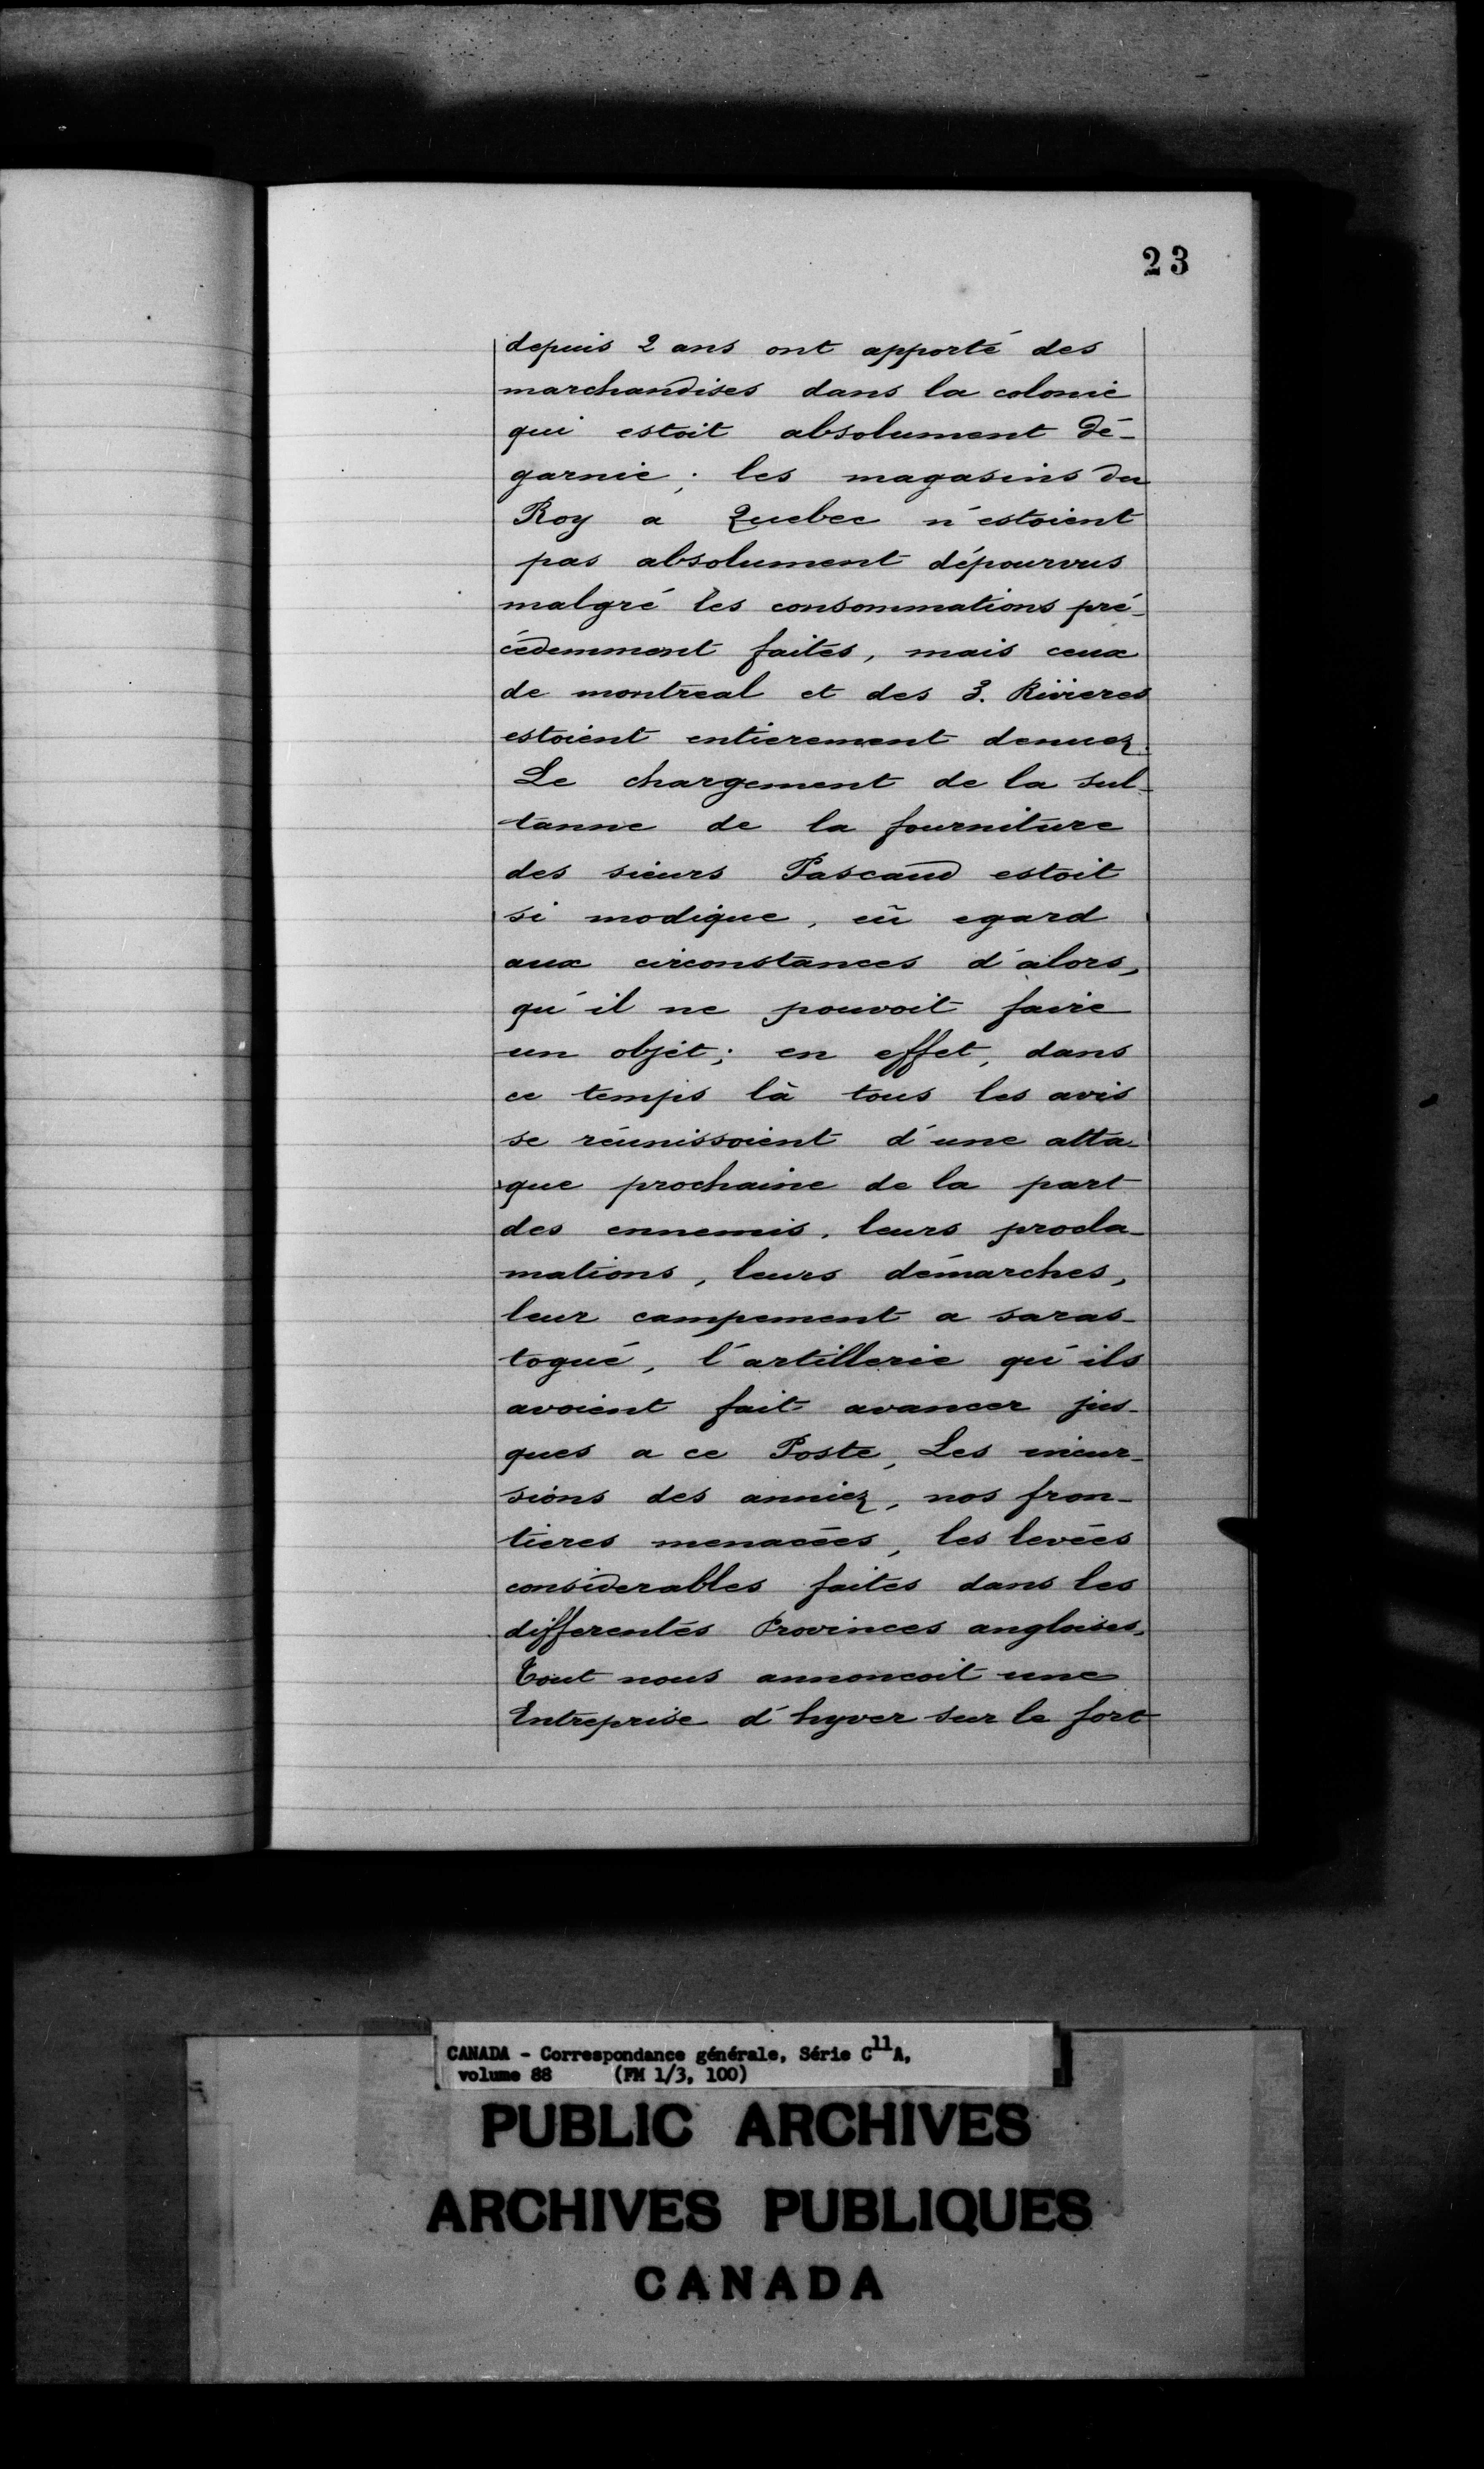 23
depuis 2 ans ont apporté des
marchandises dans la colonie
qui estoit absolument dé-
garnie ; les magasins du
Roy a Quebec n'estoient
pas absolument dépourvus
malgré les consommations pré-
cédemment faites, mais ceux
de montreal et des 3. Rivieres
estoient entierement denuez.
Le chargement de la sul-
tanne de la fourniture
des sieurs Pascaud estoit
si modique, eû egard
aux circonstances d'alors,
qu'il ne pouvoit faire
un objet; en effet, dans
ce temps là tous les avis
se réunissoient d'une atta-
que prochaine de la part
des ennemis. leurs procla-
mations, leurs démarches,
leur campement a saras-
togué, l'artillerie qu'ils
avoient fait avancer jus-
ques a ce Poste, Les incur-
sions des anniez, nos fron-
tieres menacées, les levées
considerables faites dans les
differentes Provinces angloises,
Tout nous annoncoit une
Entreprise d'hyver sur le fort
CANADA - Correspondance générale, Série C11A,
volume 88 (FM 1/3, 100)
PUBLIC ARCHIVES
ARCHIVES PUBLIQUES
CANADA